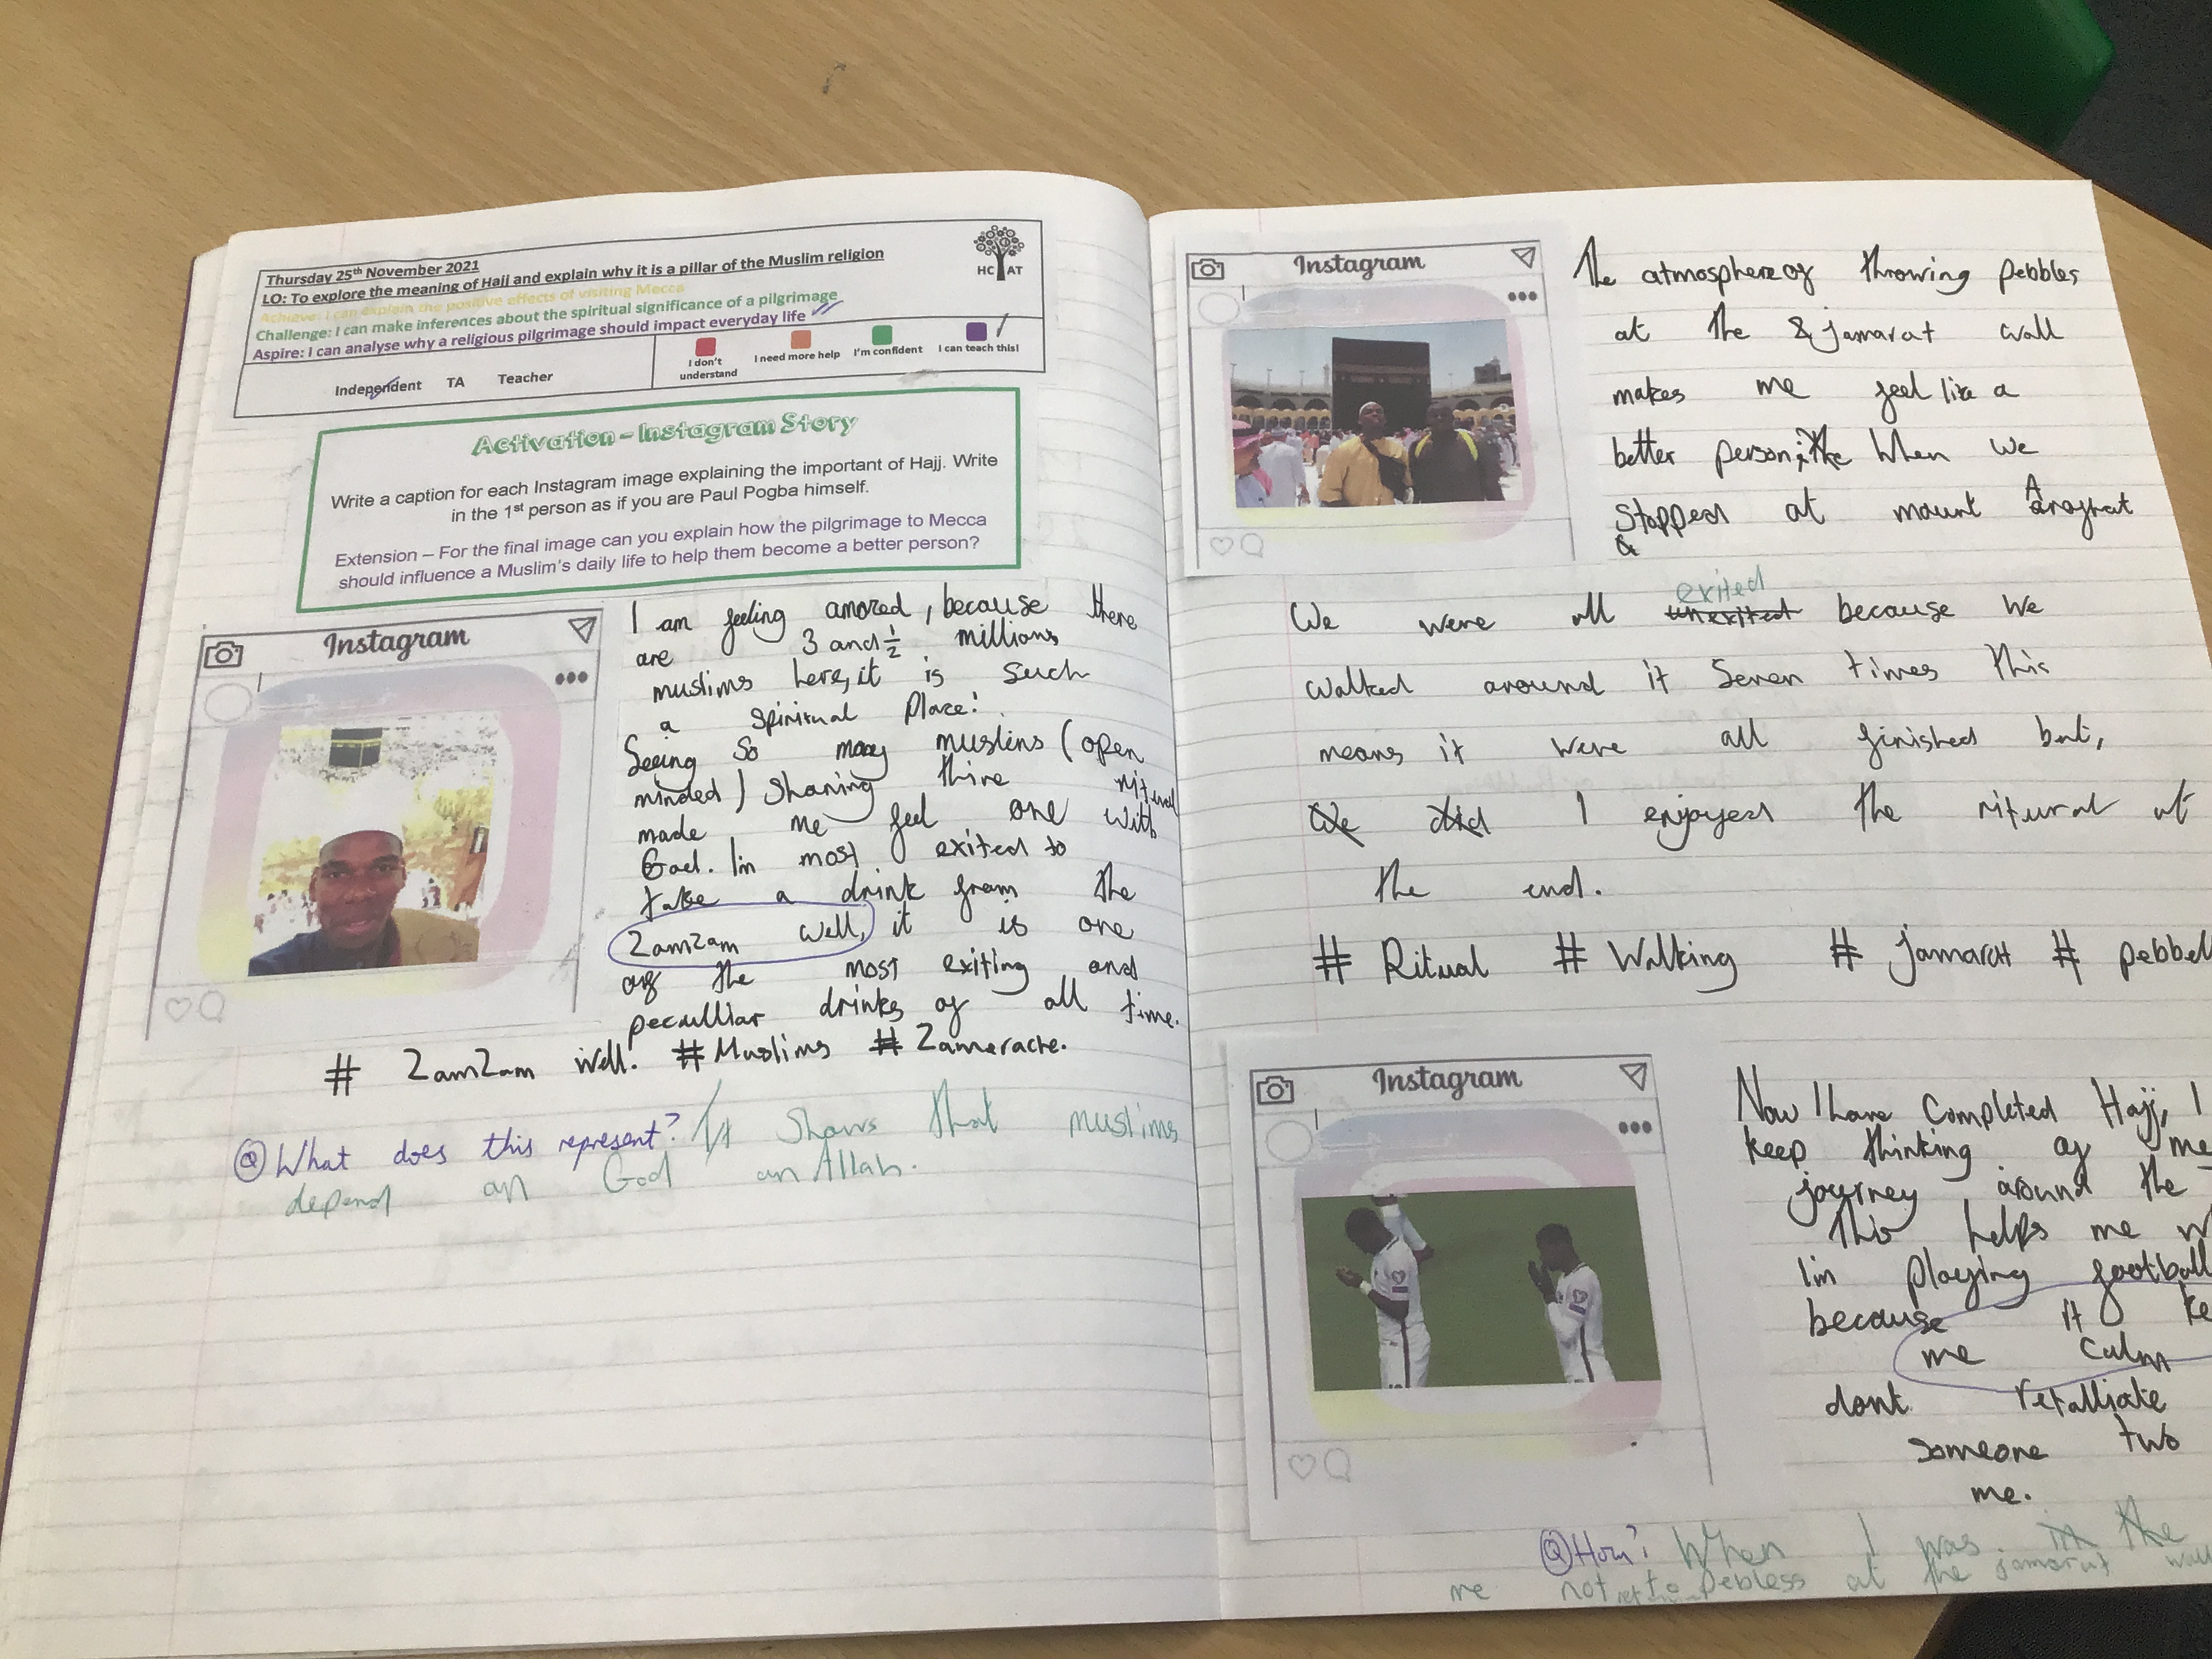 Thursday 25th November 2021
LO: To explore the meaning of Hajj and explain why it is a pillar of the Muslim religion
Achieve: I can explain the positive effects of visiting Mecca
Challenge: I can make inferences about the spiritual significance of a pilgrimage
Aspire: I can analyse why a religious pilgrimage should impact everyday life
HC AT
Independent TA Teacher
I don't understand
I need more help
I'm confident
I can teach this!
Activation - Instagram Story
Write a caption for each Instagram image explaining the important of Hajj. Write
in the 1st person as if you are Paul Pogba himself.
Extension – For the final image can you explain how the pilgrimage to Mecca
should influence a Muslim's daily life to help them become a better person?
Instagram
I am feeling amazed, because there
are 3 and 1/2 millions
muslims here, it is such
a spiritual place!
Seeing so many muslims (open
minded) sharing thire
made me feel one with
God. I'm most exited to
take a drink from the
Zamzam well, it is one
of the most exiting and
peculliar drinks of all time.
# Zamzam well. # Muslims #
Q What does this represent? It shows that muslims
depend on God on Allah.
Instagram
The atmosphere of throwing pebbles
at the jamarat wall
makes me feel like a
better person, When we
stopped at mount Arafat
exited
We were all unexited because we
walked around it seven times this
means it were all finished but,
We did I enjoyed the ritural at
the end.
# Ritual # Walking # #
Instagram
Now I have completed Hajj, I
keep thinking of
journey around the
This helps me
I'm playing football
because it
me calm
dont retalliate
someone two
me.
Q How? When I was in the
me not to pebbless at the jamarat